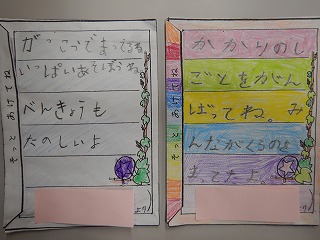 がっこうでまってるね
いっぱいあそぼうね
べんきょうも
たのしいよ
より
そっとあけてね
かかりのし
ごとをがん
ばってね。み
んながくるのを
まってたよ。
より
そっとあけてね